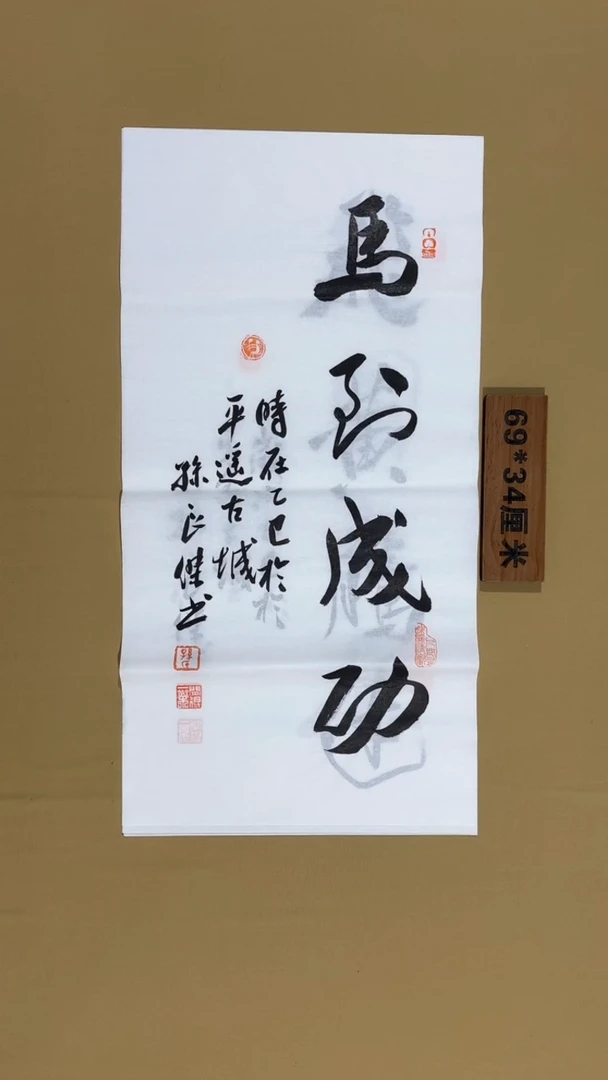 馬到成功
時在乙巳於
平遥古城
孫良傑书
69*34厘米